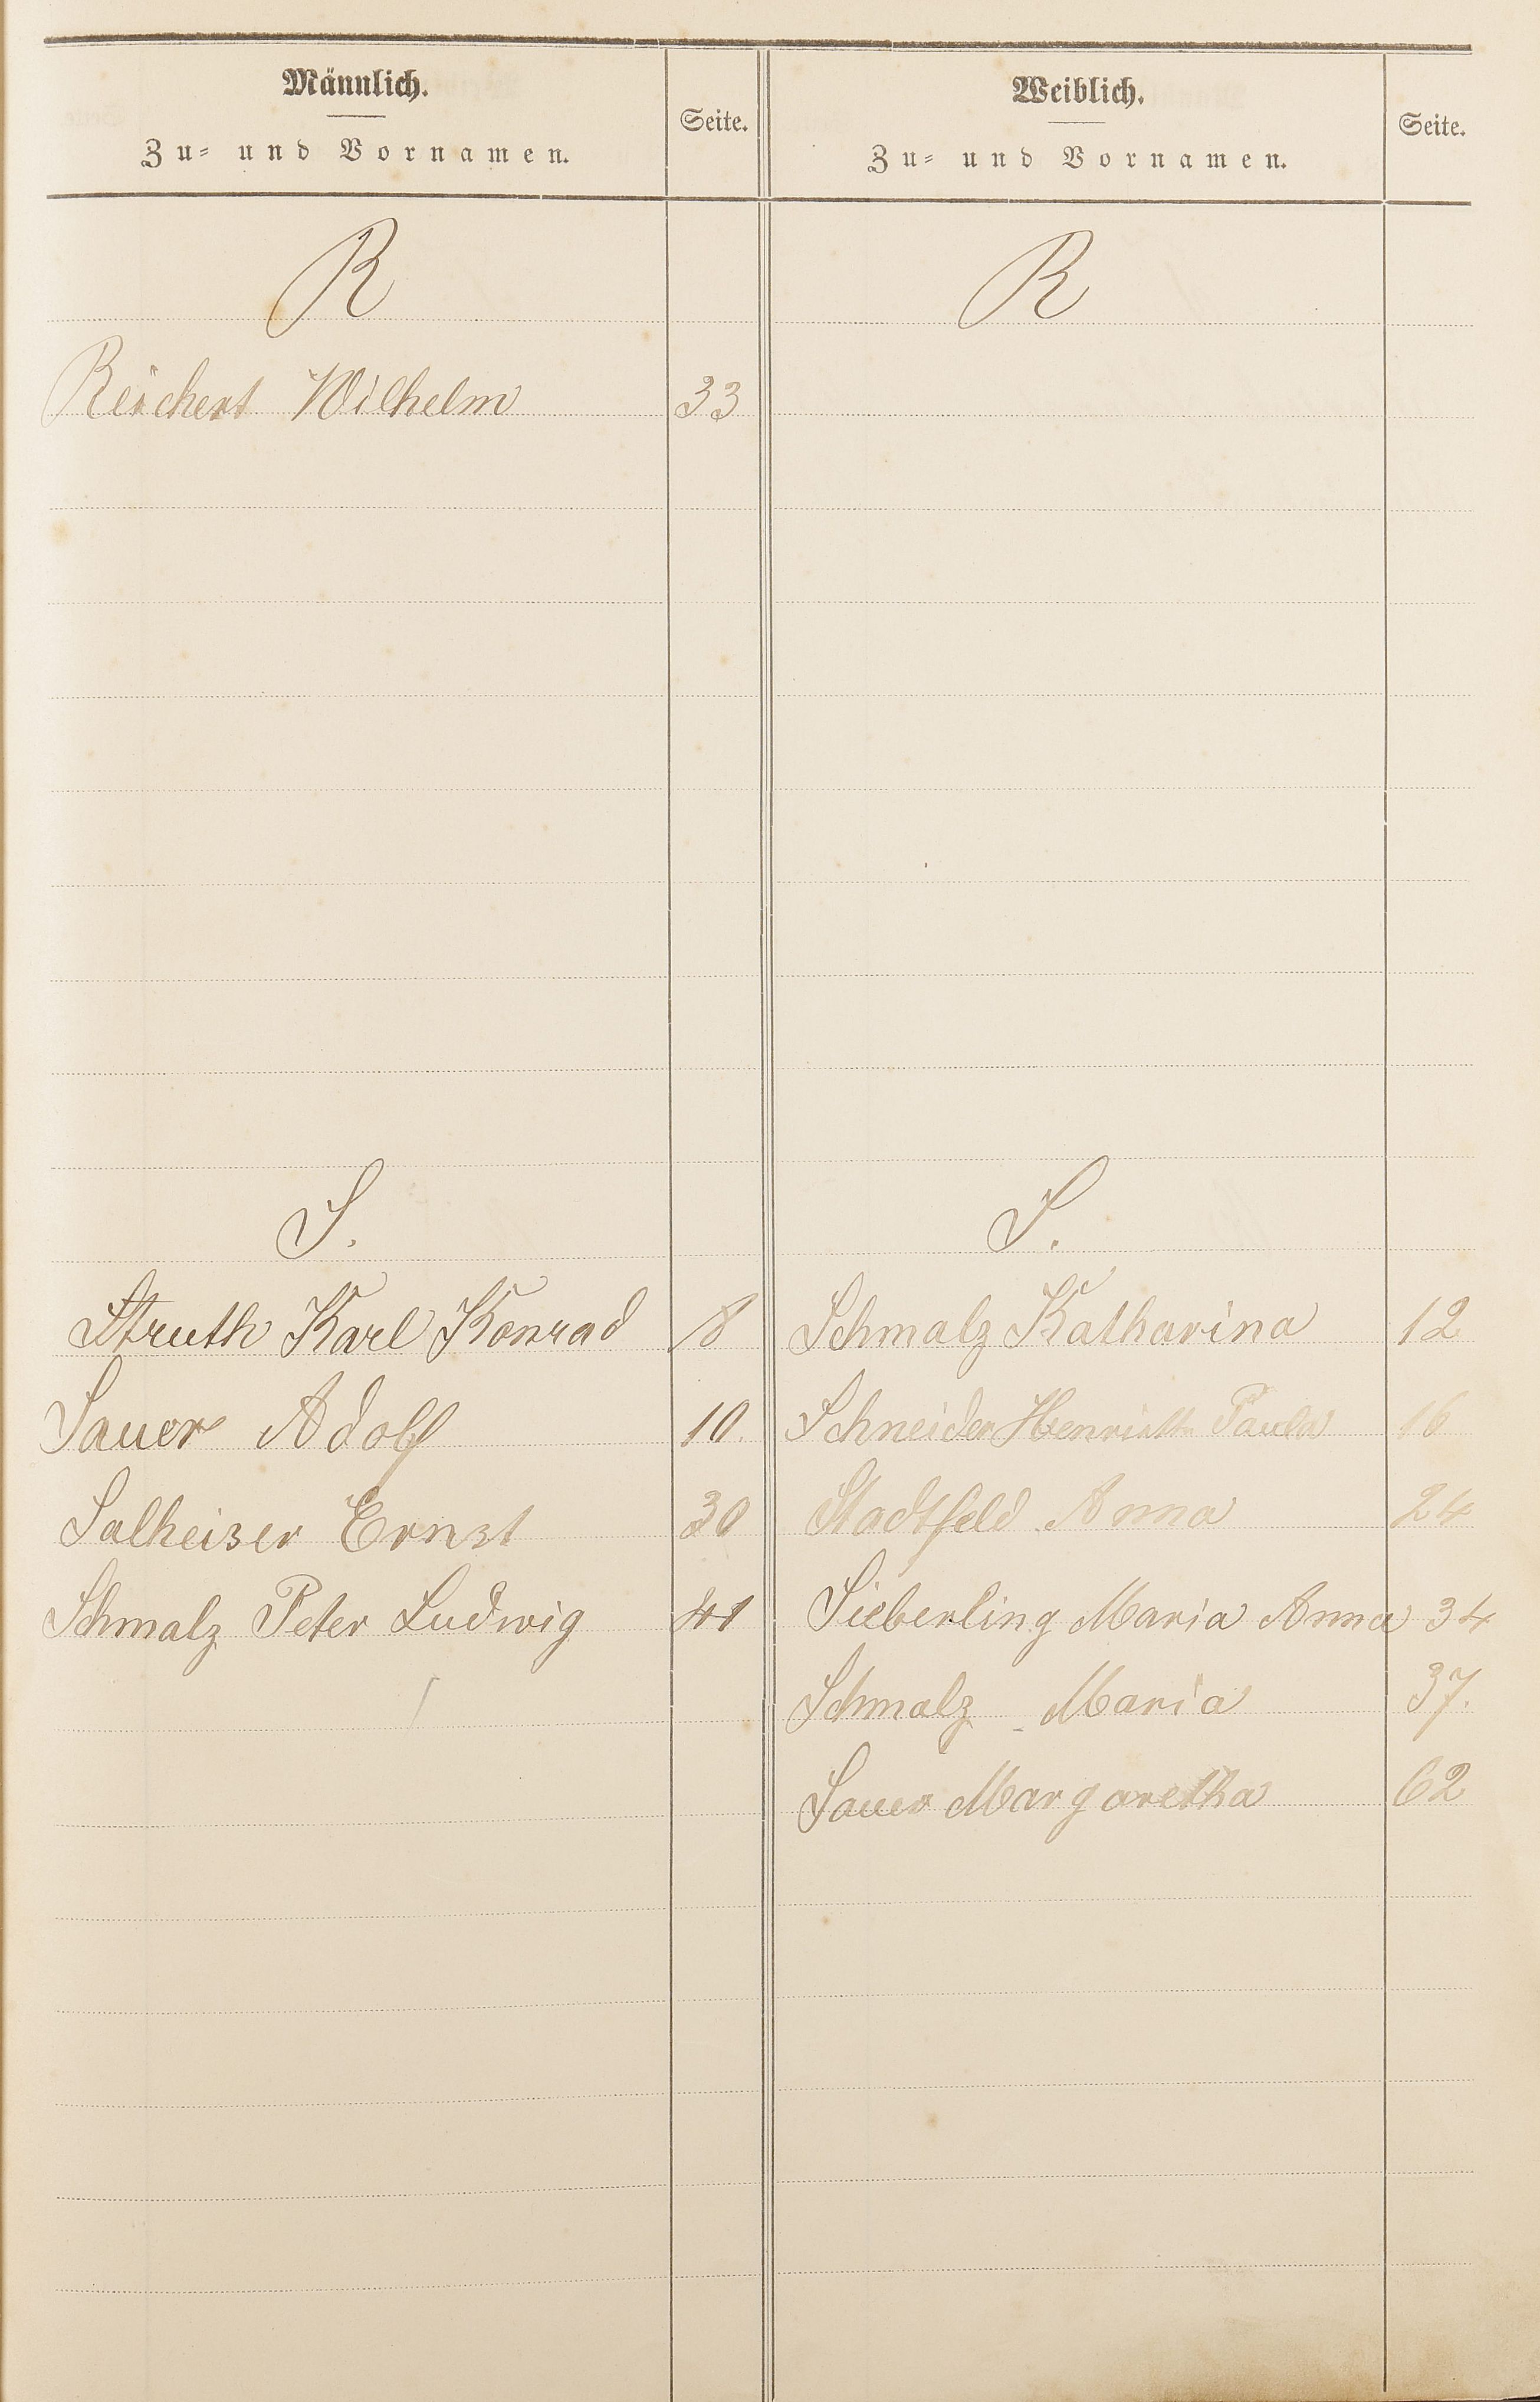 Männlich.
Zu- und Vornamen.
Seite.
Weiblich.
Zu- und Vornamen.
Seite.
R
R
Reichert Wilhelm 33
S.
S.
Struth Karl Konrad 8 Schmalz Katharina 12
Sauer Adolf 10. Schneider Henriette Paula 16
Salheiser Ernst 30 Stadtfeld Anna 24
Schmalz Peter Ludwig 41 Sieberling Maria Anna 34
Schmalz Maria 37.
Sauer Margaretha 62